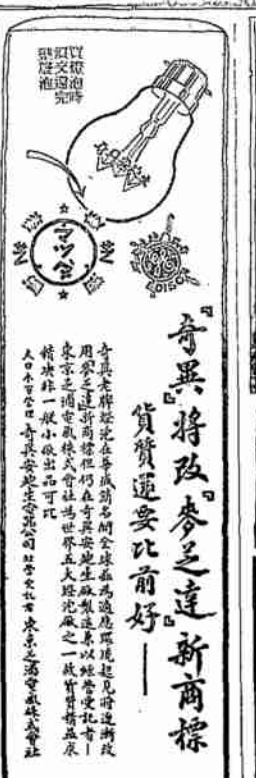 買燈泡時
須交還完
舊燈泡
マツダ
EDISON
『奇異』將改『麥芝達』新商標
貨質還要比前好——
奇異老牌燈泡在華成績名聞全球茲為適應環境起見將逐漸改
用麥芝達新商標但仍在奇異安迪生廠製造兼以經營受託者—
東京芝浦電氣株式會社為世界五大燈泡廠之一故貨質精益求
精決非一般小廠出品可比
奇異安迪生電器公司 經營受託者 東京芝浦電氣株式會社